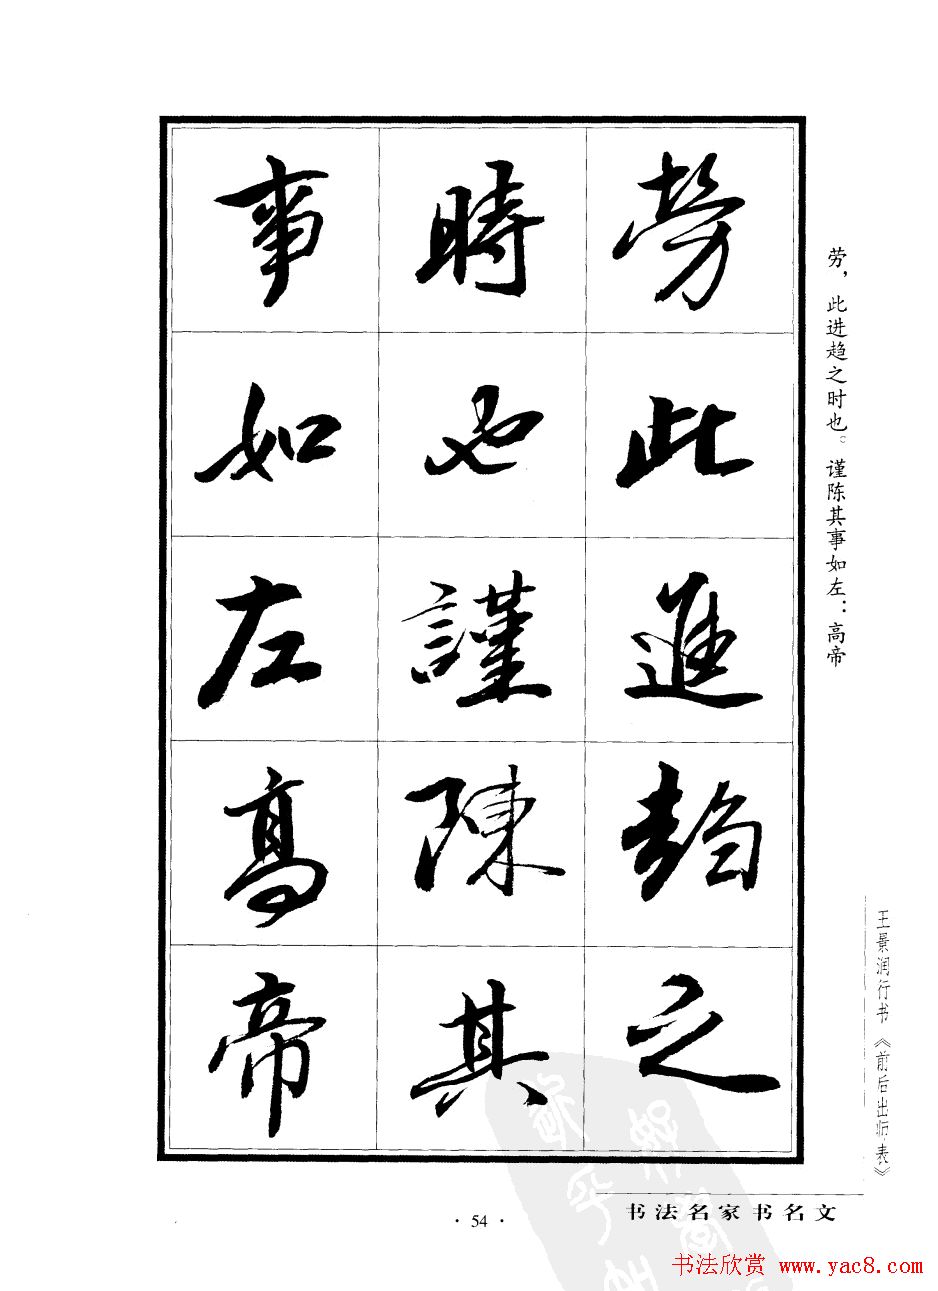 勞此進趋之
時也謹陳其
事如左高帝
劳，此进趋之时也。谨陈其事如左：高帝
王景润行书《前后出师表》
书法名家书名文
·54·
书法欣赏 www.yac8.com